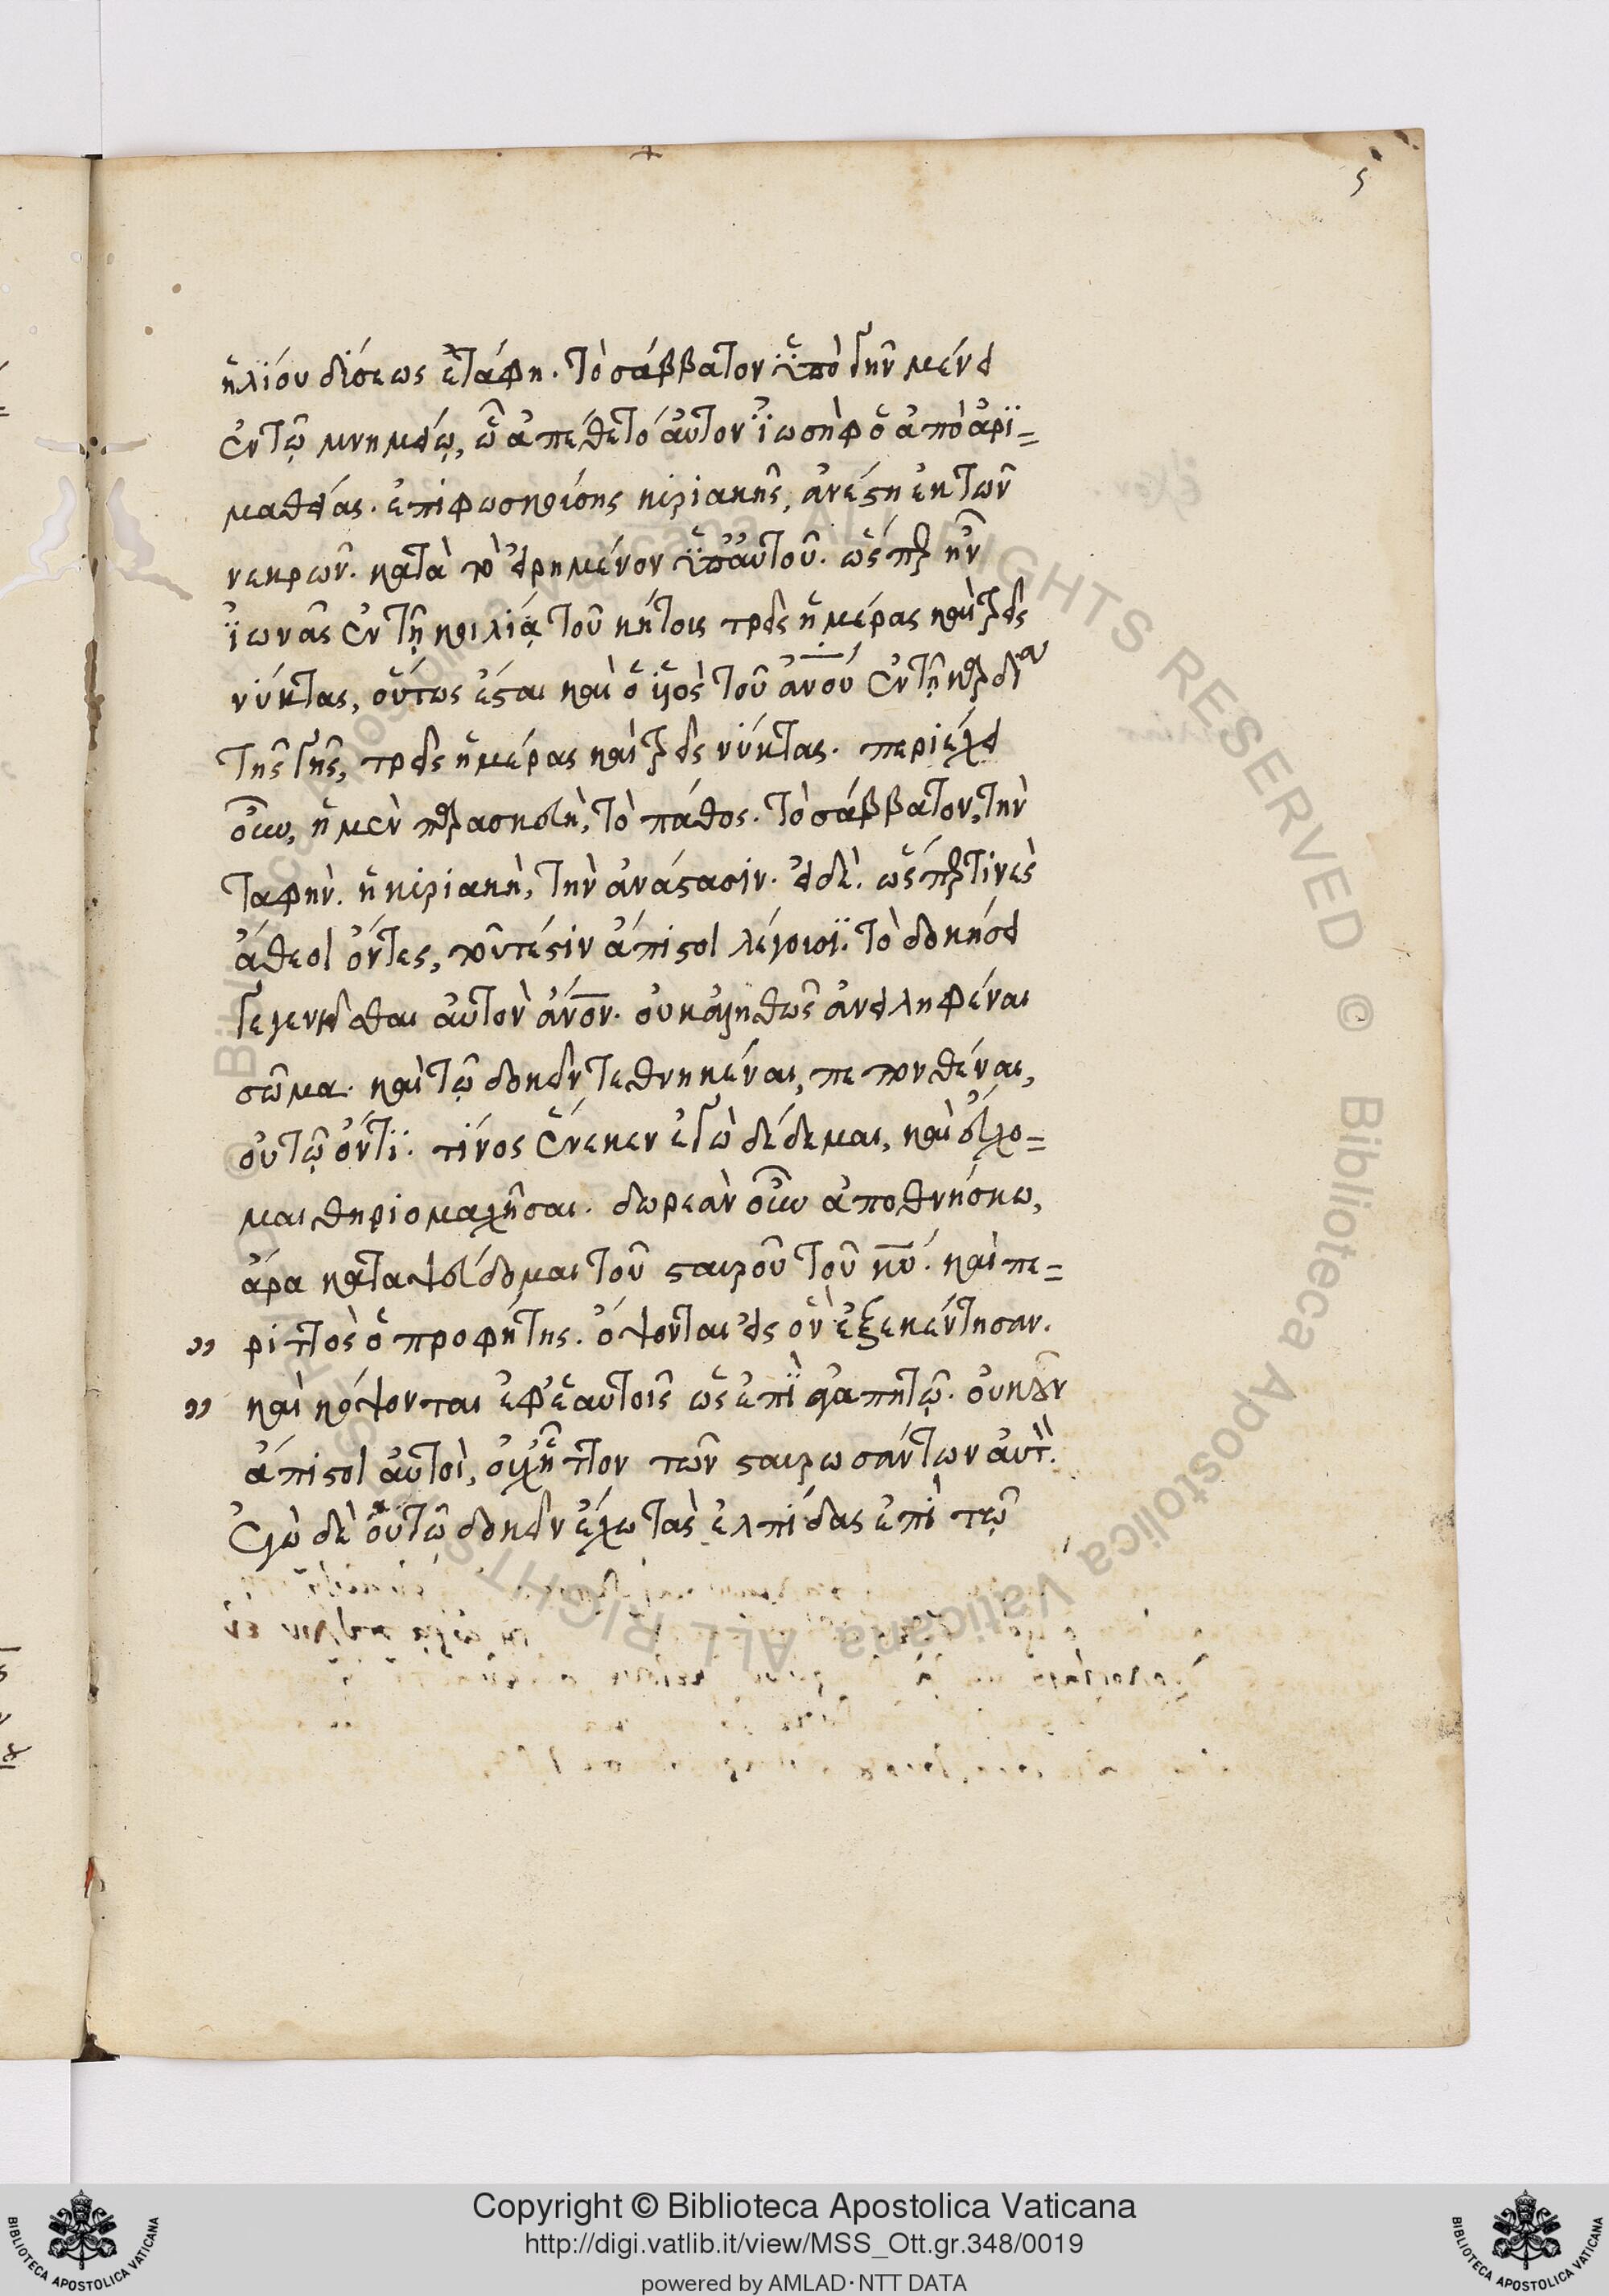 ς
ἡλίου δύσεως ἐτάφη. τὸ σάββατον ὑπὸ γῆν μένει
ἐν τῷ μνημείῳ, ᾧ ἀπέθετο αὐτὸν ἰωσὴφ ὁ ἀπὸ ἀρι=
μαθείας. ἐπιφωσκούσης κυριακῆς, ἀνέστη ἐκ τῶν
νεκρῶν. κατὰ τὸ εἰρημένον ὑπ' αὐτοῦ. ὥσπερ ἦν
ἰωνᾶς ἐν τῇ κοιλίᾳ τοῦ κήτους τρεῖς ἡμέρας καὶ τρεῖς
νύκτας, οὕτως ἔσται καὶ ὁ υἱὸς τοῦ ἀνου ἐν τῇ καρδία
τῆς γῆς, τρεῖς ἡμέρας καὶ τρεῖς νύκτας. περιέχει
οὖν, ἡ μὲν παρασκευὴ, τὸ πάθος. τὸ σάββατον, τὴν
ταφήν. ἡ κυριακὴ, τὴν ἀνάστασιν. εἰ δὲ. ὥσπερ τινὲς
ἄθεοι ὄντες, τουτέστιν ἄπιστοι λέγουσι. τὸ δοκήσει
γεγενεῖσθαι αὐτὸν ἄνον. οὐκ ἀληθῶς ἀνειληφέναι
σῶμα. καὶ τῷ δοκεῖν τεθνηκέναι, πεπονθέναι,
οὐ τῷ ὄντι. τίνος ἕνεκεν ἐγὼ δέδεμαι, καὶ εὔχο=
μαι θηριομαχῆσαι. δωρεὰν οὖν ἀποθνήσκω,
ἄρα καταψεύδομαι τοῦ σταυροῦ τοῦ κυ. καὶ πε=
ριττὸς ὁ προφήτης. ὄψονται εἰς ὃν ἐξεκέντησαν.
καὶ κόψονται ἐφ' ἑαυτοῖς ὡς ἐπὶ ἀγαπητῷ. οὐκοῦν
ἄπιστοι αὐτοὶ, οὐχ ἧττον τῶν σταυρωσάντων αὐτ.
Ἐγὼ δὲ οὐ τῶ δοκεῖν ἔχω τὰς ἐλπίδας ἐπὶ τῷ
Copyright © Biblioteca Apostolica Vaticana
http://digi.vatlib.it/view/MSS_Ott.gr.348/0019
powered by AMLAD·NTT DATA